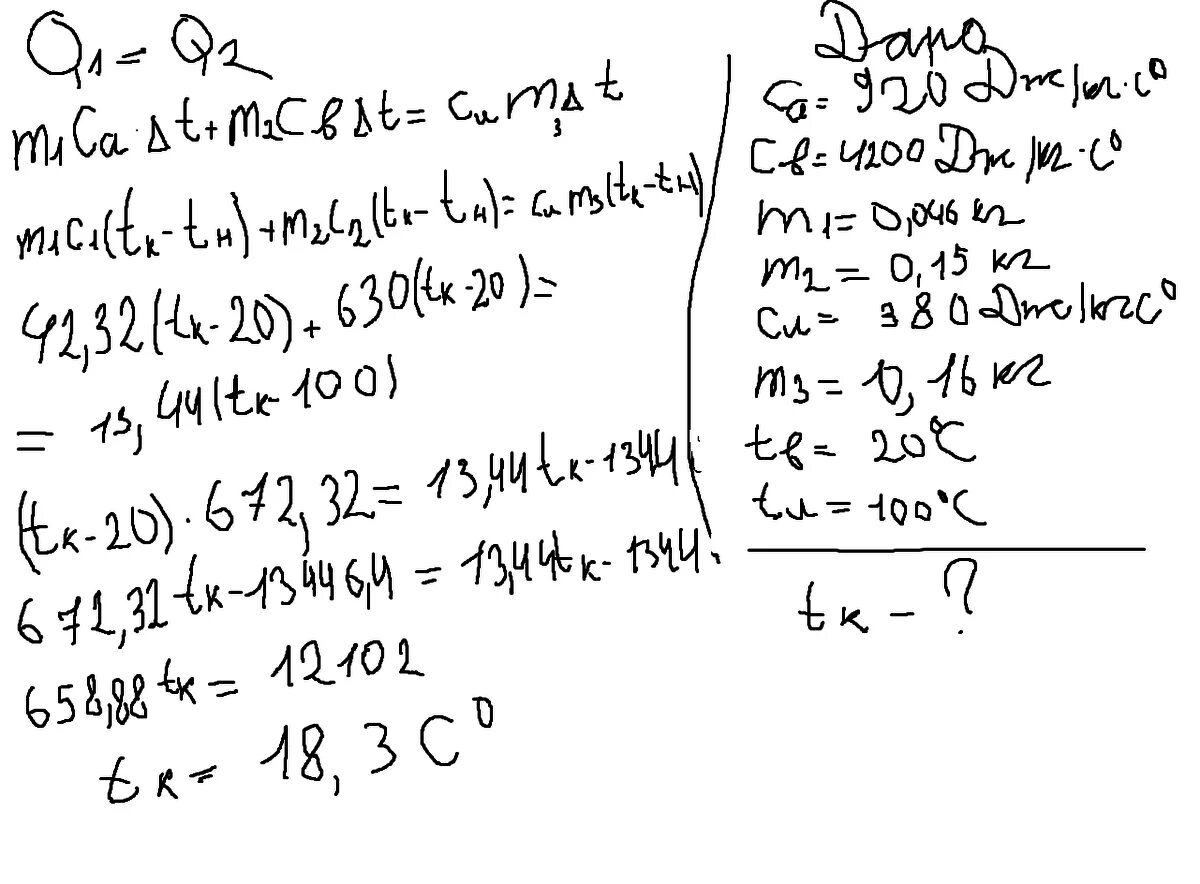 Q1 = Q2
m1Cа·Δt+m2CвΔt=Cиm3Δt
m1C1(tк-tн)+m2C2(tк-tн)=Cиm3(tк-tн)
42,32(tк-20)+630(tк-20)=
= 13,44(tк-100)
(tк-20)·672,32=13,44tк-1344
672,32tк-13446,4=13,44tк-1344
658,88tк=12102
tк=18,3C°
Дано
Cа=920 Дж/кг·C°
Cв=4200 Дж/кг·C°
m1=0,046 кг
m2=0,15 кг
Cи=380 Дж/кгC°
m3=0,16 кг
tв=20°C
tи=100°C
tк-?